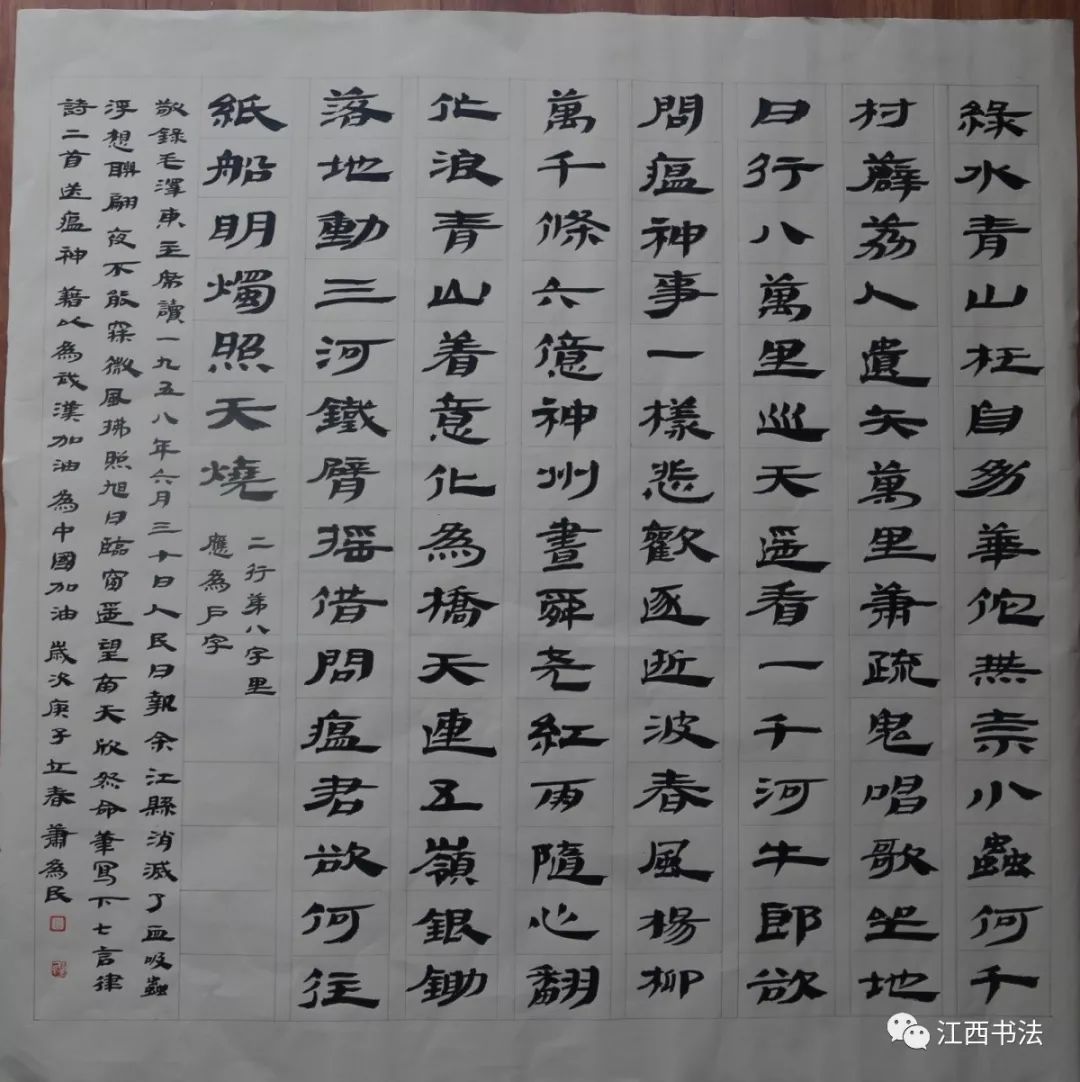 綠水青山枉自多華佗無奈小蟲何千
村薜荔人遺矢萬里蕭疏鬼唱歌坐地
日行八萬里巡天遙看一千河牛郎欲
問瘟神事一樣悲歡逐逝波春風楊柳
萬千條六億神州盡舜堯紅雨隨心翻
作浪青山着意化為橋天連五嶺銀鋤
落地動三河鐵臂搖借問瘟君欲何往
紙船明燭照天燒
二行第八字里
應為戶字
敬錄毛澤東主席讀一九五八年六月三十日人民日報余江縣消滅了血吸蟲
浮想聯翩夜不能寐微風拂照旭日臨窗遙望南天欣然命筆寫下七言律
詩二首送瘟神 藉以為武漢加油 為中國加油 歲次庚子立春 蕭為民
江西书法